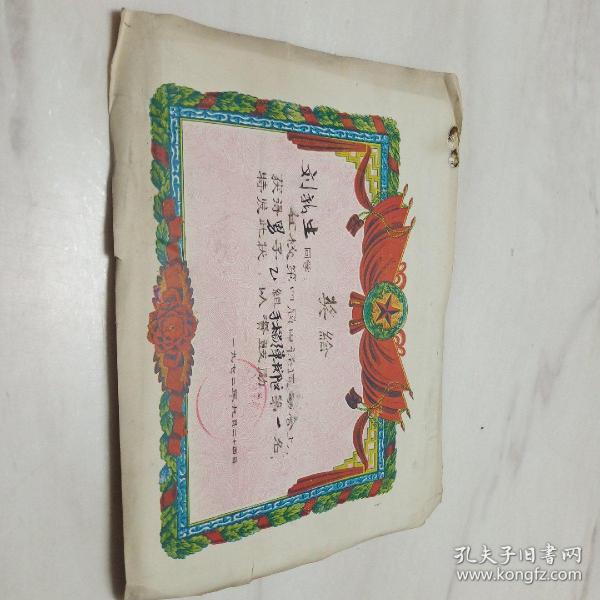 奖给
刘 生同学:
在校第四届田径运动会上,
获得男子乙组手榴弹 第一名,
特发此状,以资鼓励
一九七二年九月二十四日
孔夫子旧书网
www.kongfz.com